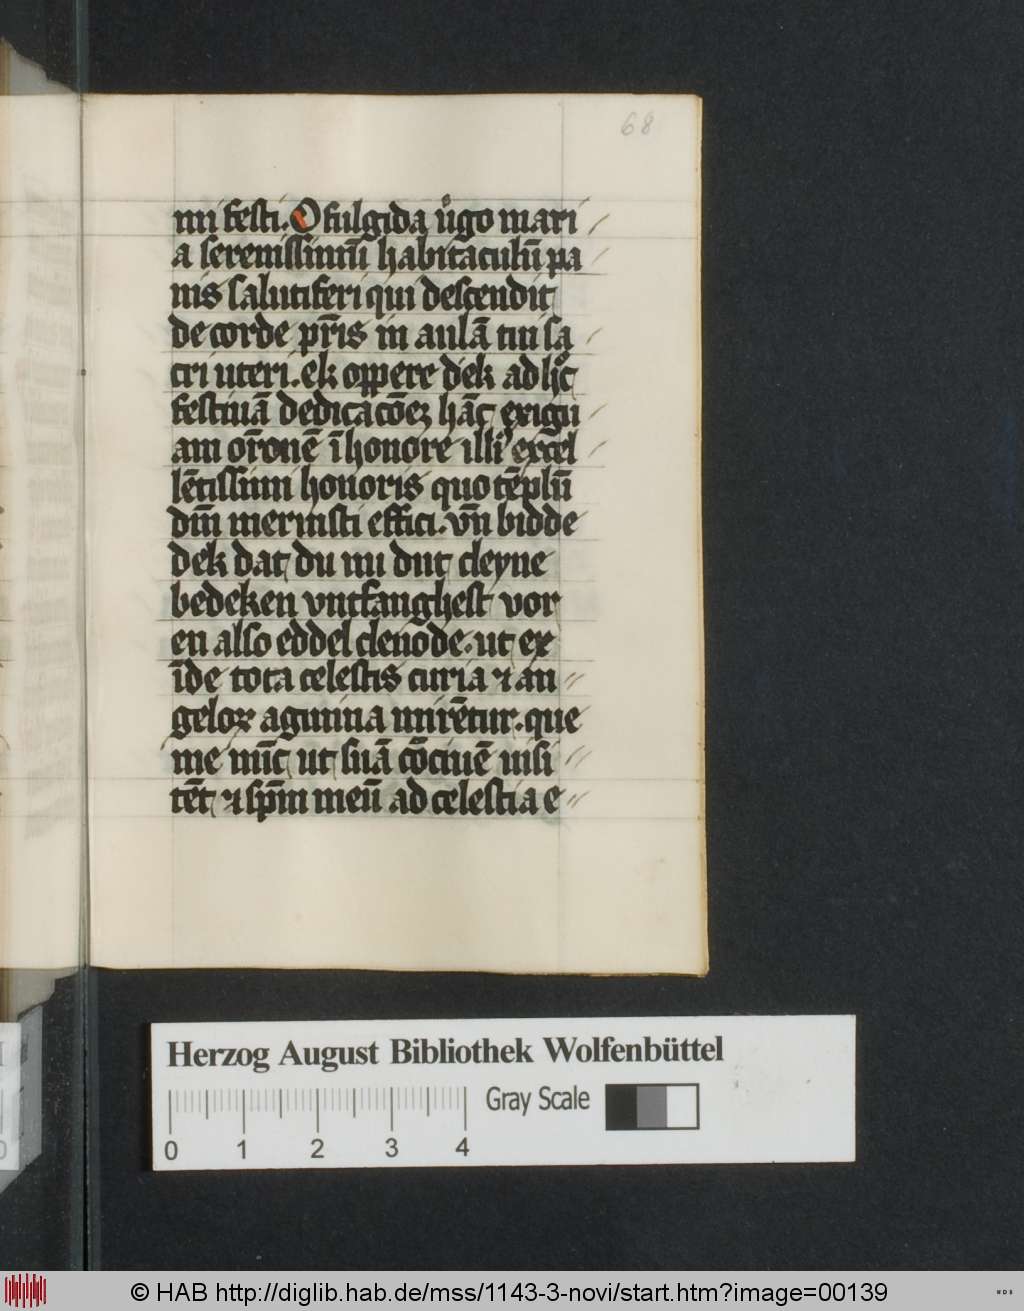 68
mi festi. O fulgida v̊go mari
a serenissimū habitaculū pa
nis salutiferi qui descendit
de corde pr̄is in aulā tui sa
cri uteri. ek oppere dek ad hͦc
festiuā dedicacōeʒ hāc exigu
am or̄onē ī honore illiꝰ excel
lētissimi honoris quo tēplū
dm̄ meruisti effici. vn̄ bidde
dek dat du nu dut cleyne
bedeken vntfanghest vor
en also eddel clenode. ut ex
īde tota celestis curia ⁊ an
geloꝝ agmina mirētur. que
me nūc ut suā cōciuē uisi
tēt ⁊ sp̄m meū ad celestia e
Herzog August Bibliothek Wolfenbüttel
Gray Scale
0 1 2 3 4
© HAB http://diglib.hab.de/mss/1143-3-novi/start.htm?image=00139